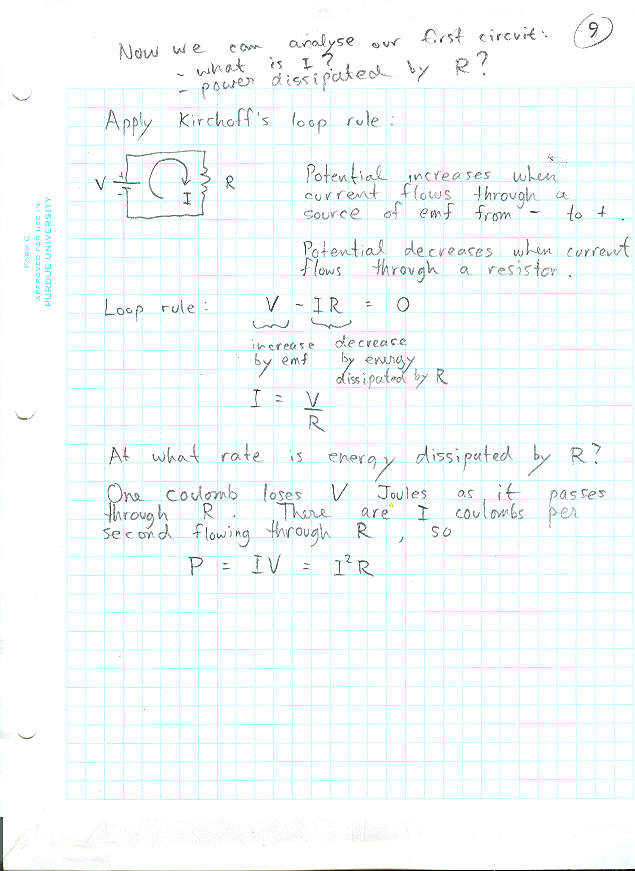 9
Now we can analyse our first circuit:
- what is I?
- power dissipated by R?
Apply Kirchoff's loop rule:
V + - I R
Potential increases when
current flows through a
source of emf from - to +.
Potential decreases when current
flows through a resistor.
Loop rule: V - IR = 0
increase decrease
by emf by energy
dissipated by R
I = V/R
At what rate is energy dissipated by R?
One coulomb loses V Joules as it passes
through R. There are I coulombs per
second flowing through R, so
P = IV = I²R
FORM C
APPROVED FOR USE IN
PURDUE UNIVERSITY